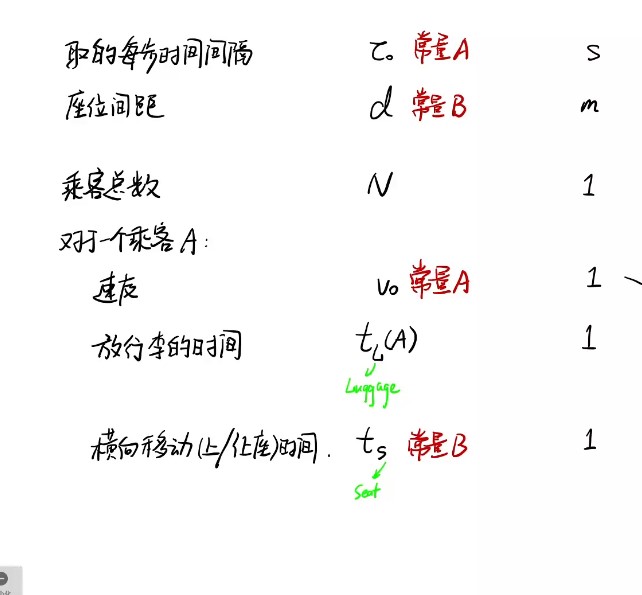 取的每步时间间隔 τ₀ 常量A s
座位间距 d 常量B m
乘客总数 N 1
对于一个乘客A:
速度 v₀ 常量A 1
放行李的时间 t_L(A) 1
Luggage
横向移动(上/让座)时间. t_s 常量B 1
Seat